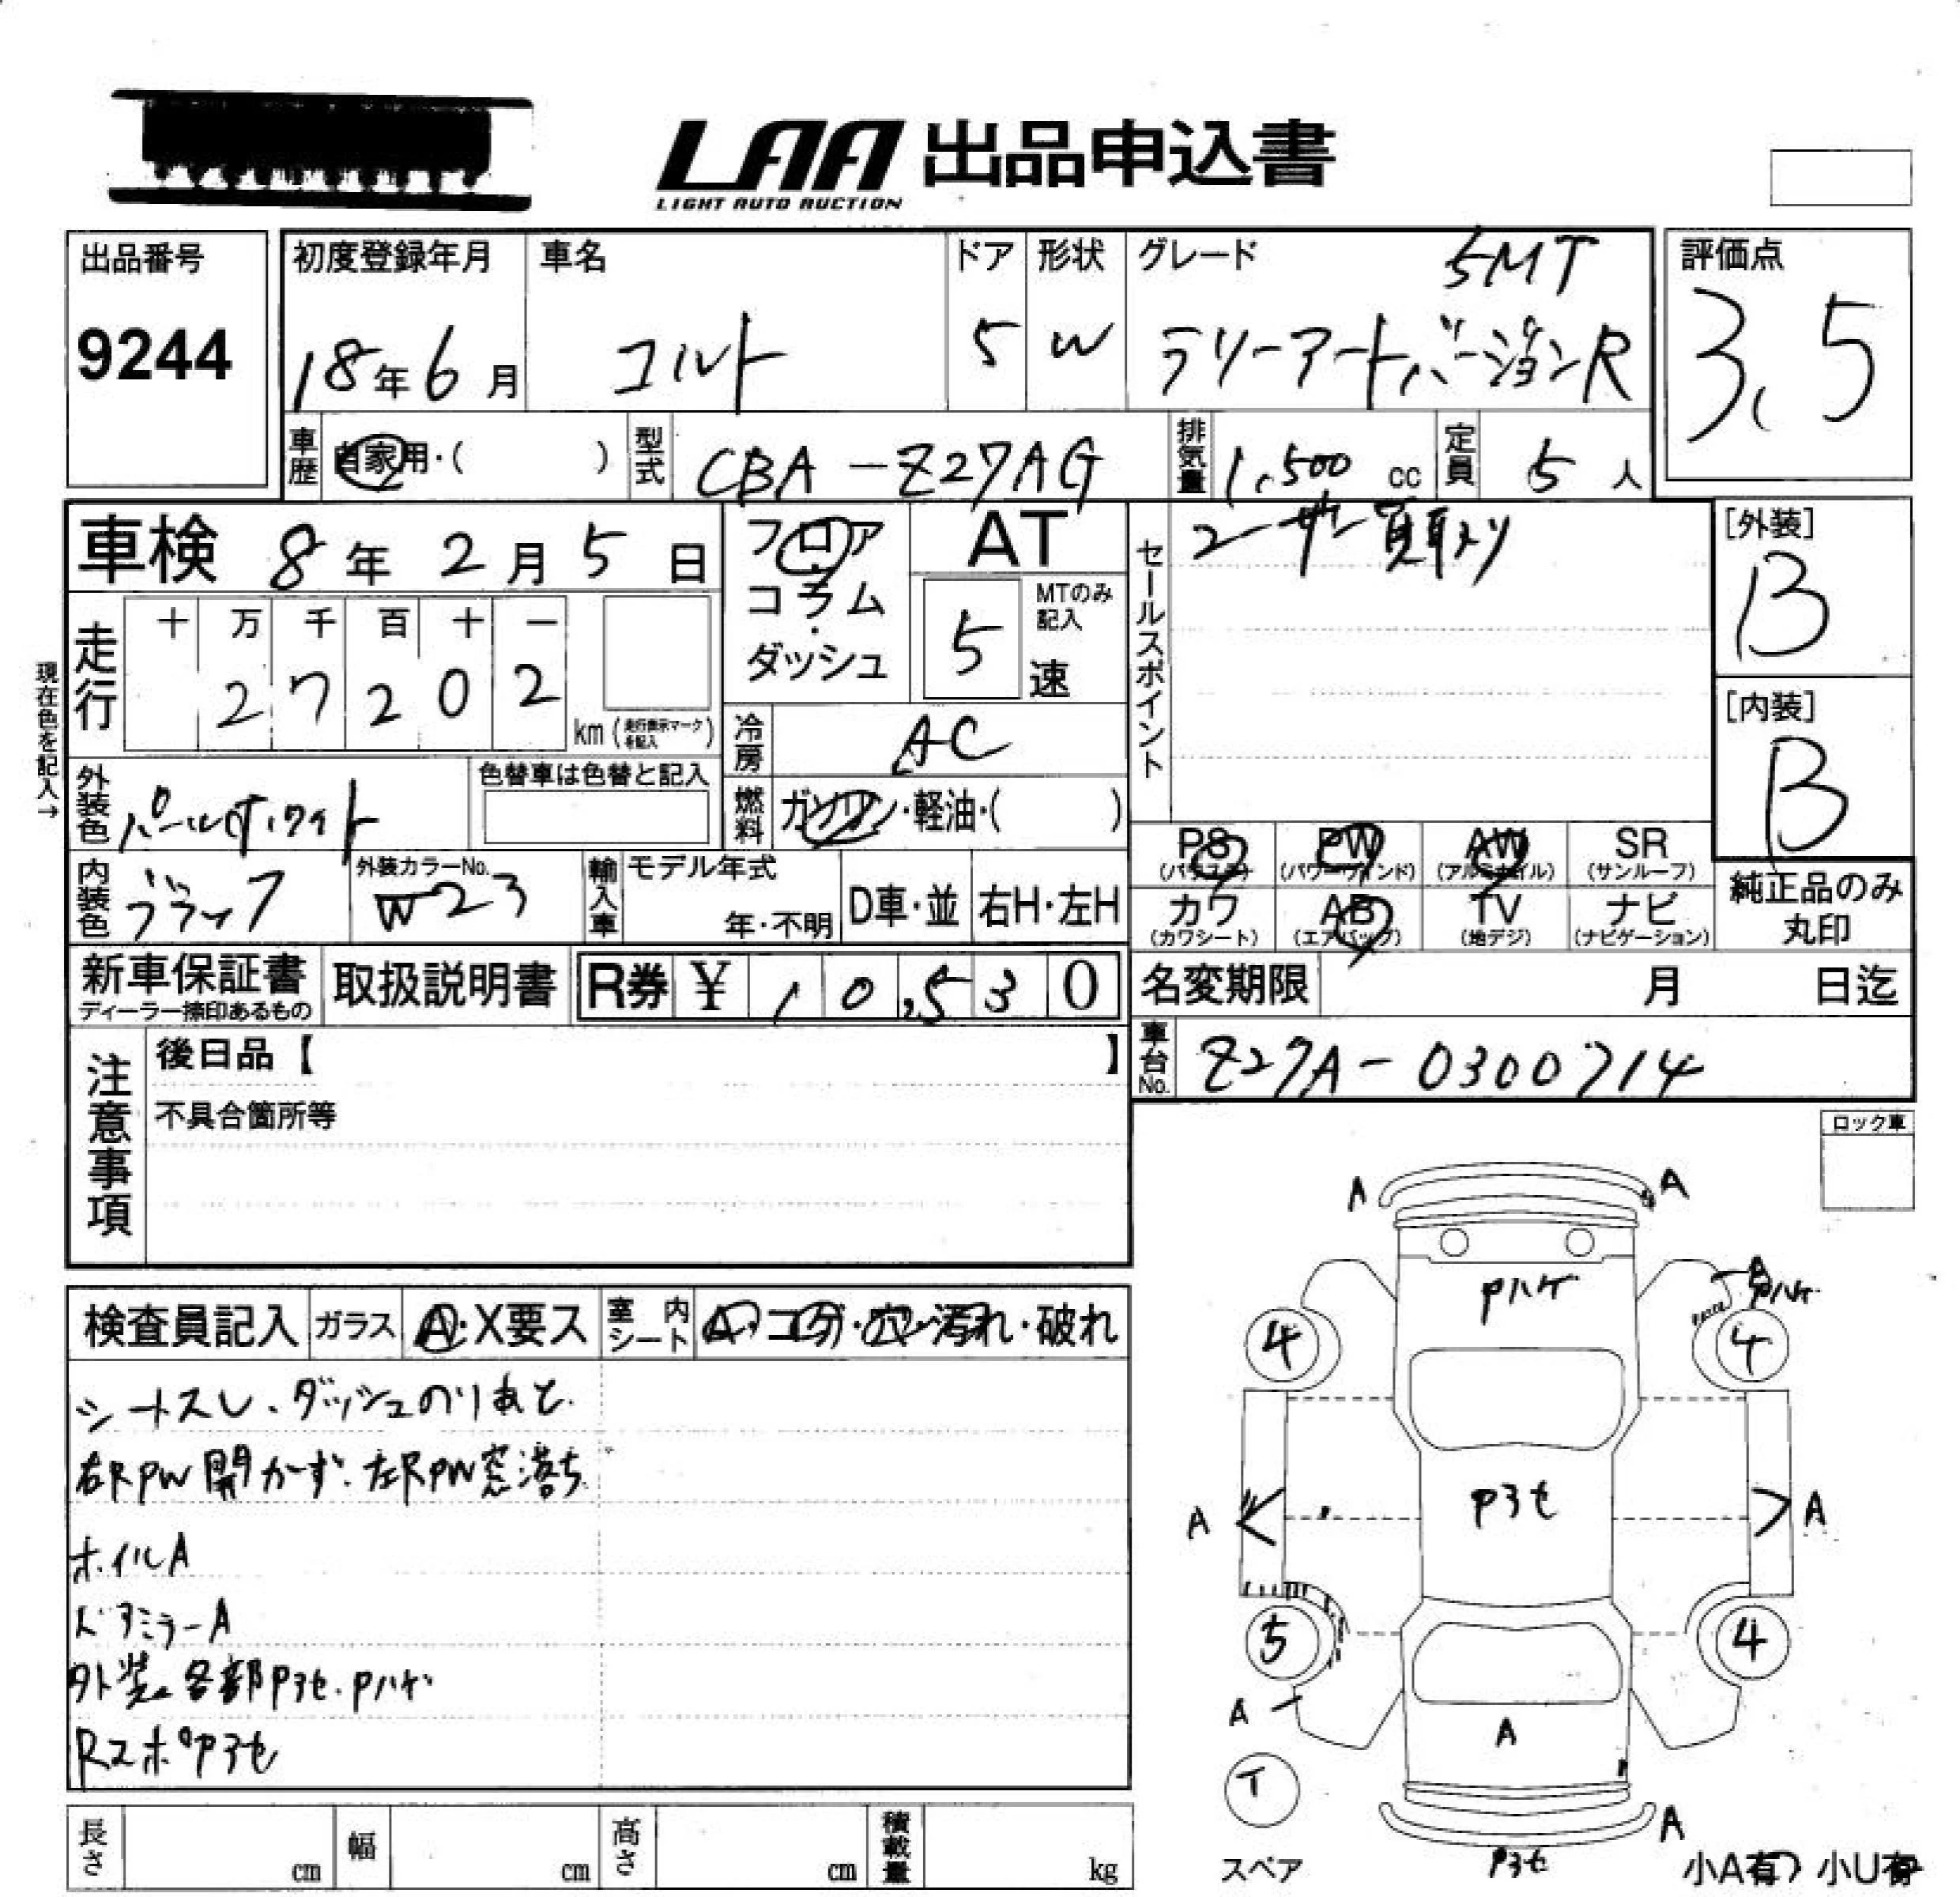 LAA 出品申込書
LIGHT AUTO AUCTION
出品番号
9244
初度登録年月
18年6月
車名
コルト
ドア
5
形状
W
グレード
5MT
ラリーアートバージョンR
評価点
3.5
車歴
自家用・( )
型式
CBA-Z27AG
排気量
1,500 cc
定員
5 人
車検 8年2月5日
走行
十 万 千 百 十 一
2 7 2 0 2
km (走行表示マークを記入)
現在色を記入→
フロア・コラム・ダッシュ
AT
5
MTのみ記入
速
冷房
AC
燃料
ガソリン・軽油・( )
セールスポイント
ユーザー買取り
[外装]
B
[内装]
B
外装色
パールホワイト
色替車は色替と記入
内装色
ブラック
外装カラーNo.
W23
輸入車
モデル年式
年・不明
D車・並
右H・左H
PS PW AW SR
(パワステ) (パワーウィンド) (アルミホイル) (サンルーフ)
カワ AB TV ナビ
(カワシート) (エアバック) (地デジ) (ナビゲーション)
純正品のみ
丸印
新車保証書
ディーラー捺印あるもの
取扱説明書
R券 ¥ 10,530
名変期限 月 日迄
車台No.
Z27A-0300714
注意事項
後日品【 】
不具合箇所等
ロック車
検査員記入
ガラス
A・X要ス
室内シート
A・コゲ・穴・汚れ・破れ
シートスレ、ダッシュのりあと.
右RPW開かず.左RPW窓落ち
ホイルA
ドアミラーA
外装各部Pヨセ.Pハゲ
RスポPヨセ
A A
Pハゲ
A Pハゲ
4 4
Pヨセ
A A
5 4
A
A
T
A
Pヨセ
スペア
小A有 小U有
長さ cm
幅 cm
高さ cm
積載量 kg